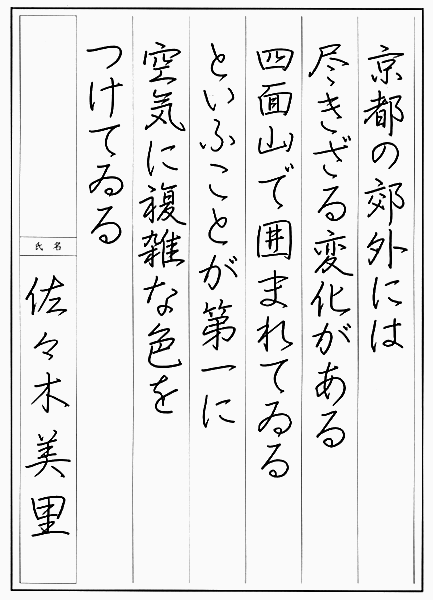 京都の郊外には
尽きざる変化がある
四面山で囲まれてゐる
といふことが第一に
空気に複雑な色を
つけてゐる
氏名
佐々木美里